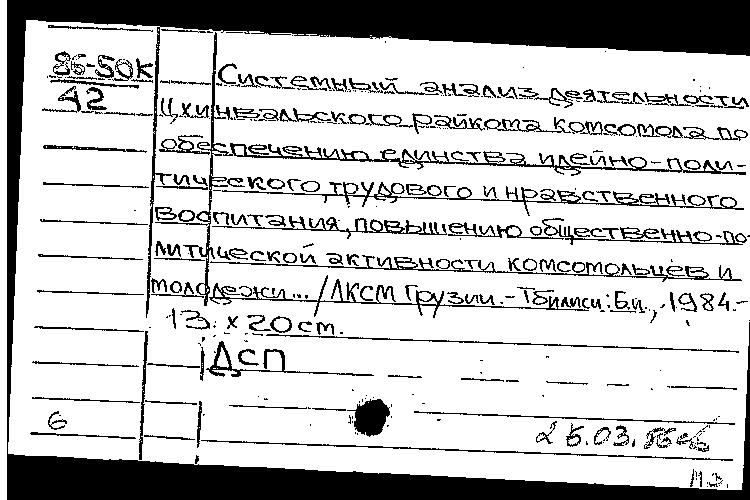 86-50К
42
Системный анализ деятельности
Цхинвальского райкома комсомола по
обеспечению единства идейно-поли-
тического, трудового и нравственного
воспитания, повышению общественно-по-
литической активности комсомольцев и
молодежи... / ЛКСМ Грузии.- Тбилиси: Б.и., 1984.-
13. x 20 см.
ДСП
6
25.03.86
М.Э.